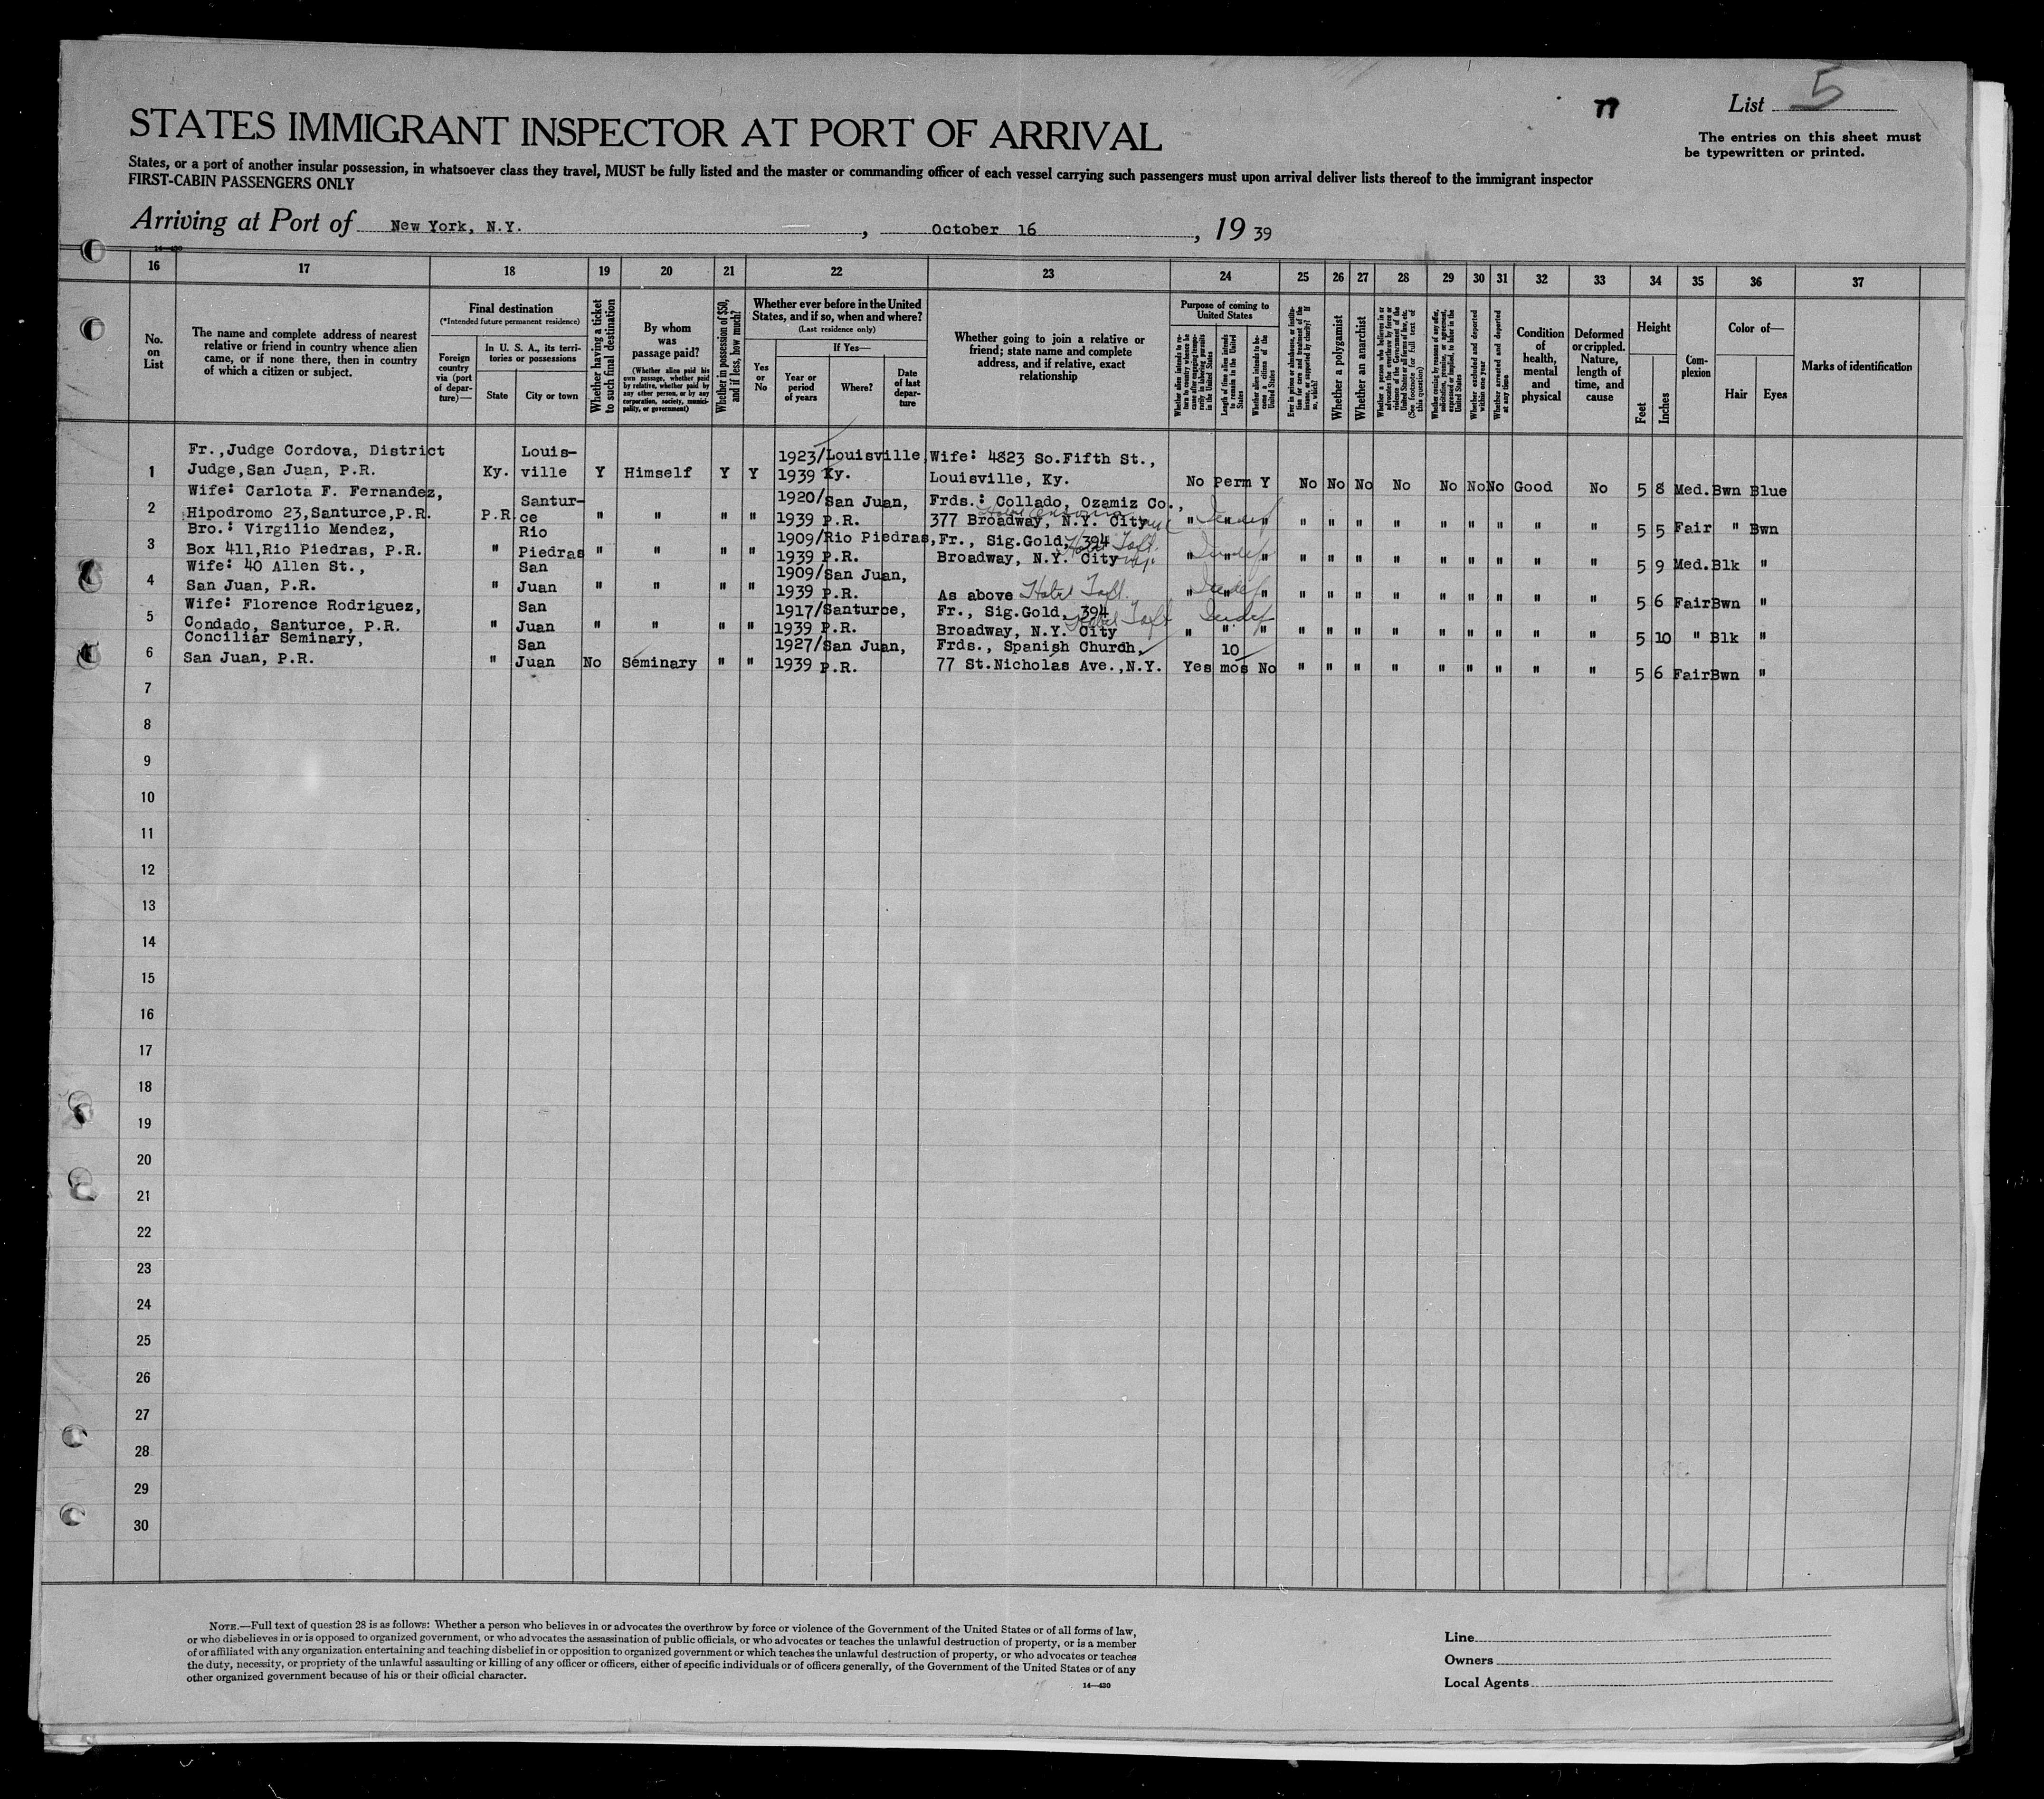 77
List 5
STATES IMMIGRANT INSPECTOR AT PORT OF ARRIVAL
The entries on this sheet must
be typewritten or printed.
States, or a port of another insular possession, in whatsoever class they travel, MUST be fully listed and the master or commanding officer of each vessel carrying such passengers must upon arrival deliver lists thereof to the immigrant inspector
FIRST-CABIN PASSENGERS ONLY
Arriving at Port of New York, N.Y. , October 16 , 19 39
14—430
16 17 18 19 20 21 22 23 24 25 26 27 28 29 30 31 32 33 34 35 36 37
No.
on
List
The name and complete address of nearest
relative or friend in country whence alien
came, or if none there, then in country
of which a citizen or subject.
Final destination
(*Intended future permanent residence)
Foreign
country
via (port
of depar-
ture)—
In U. S. A., its terri-
tories or possessions
State
City or town
Whether having a ticket
to such final destination
By whom
was
passage paid?
(Whether alien paid his
own passage, whether paid
by relative, whether paid by
any other person, or by any
corporation, society, munici-
pality, or government)
Whether in possession of $50,
and if less, how much?
Whether ever before in the United
States, and if so, when and where?
(Last residence only)
Yes
or
No
If Yes—
Year or
period
of years
Where?
Date
of last
depar-
ture
Whether going to join a relative or
friend; state name and complete
address, and if relative, exact
relationship
Purpose of coming to
United States
Whether alien intends to re-
turn to country whence he
came after engaging tempo-
rarily in laboring pursuits
in the United States
Length of time alien intends
to remain in the United
States
Whether alien intends to be-
come a citizen of the
United States
Ever in prison or almshouse, or institu-
tion for care and treatment of the
insane, or supported by charity? If
so, which?
Whether a polygamist
Whether an anarchist
Whether a person who believes in or
advocates the overthrow by force or
violence of the Government of the
United States or all forms of law, etc.
(See footnote for full text of
this question)
Whether coming by reasons of any offer,
solicitation, promise, or agreement,
expressed or implied, to labor in the
United States
Whether excluded and deported
within one year
Whether arrested and deported
at any time
Condition
of
health,
mental
and
physical
Deformed
or crippled.
Nature,
length of
time, and
cause
Height
Feet
Inches
Com-
plexion
Color of—
Hair
Eyes
Marks of identification
Fr.,Judge Cordova, District Louis- 1923/Louisville, Wife: 4823 So.Fifth St.,
1 Judge,San Juan, P.R. Ky. ville Y Himself Y Y 1939 Ky. Louisville, Ky. No perm Y No No No No No No No Good No 5 8 Med. Bwn Blue
Wife: Carlota F. Fernandez, Santur- 1920/San Juan, Frds.: Collado, Ozamiz Co.,
2 Hipodromo 23,Santurce,P.R. P.R. ce " " " " 1939 P.R. 377 Broadway, N.Y. City " " " Indef " " " " " " " " " 5 5 Fair " Bwn
Bro.: Virgilio Mendez, Rio 1909/Rio Piedras, Fr., Sig.Gold, 394 Hotel Taft.
3 Box 411,Rio Piedras, P.R. " Piedras " " " " 1939 P.R. Broadway, N.Y. City " " " Indef " " " " " " " " " 5 9 Med. Blk "
Wife: 40 Allen St., San 1909/San Juan,
4 San Juan, P.R. " Juan " " " " 1939 P.R. As above Hotel Taft. " " " Indef " " " " " " " " " 5 6 Fair Bwn "
Wife: Florence Rodriguez, San 1917/Santurce, Fr., Sig.Gold, 394 Hotel Taft
5 Condado, Santurce, P.R. " Juan " " " " 1939 P.R. Broadway, N.Y. City " " " Indef " " " " " " " " " 5 10 " Blk "
Conciliar Seminary, San 1927/San Juan, Frds., Spanish Church, 10
6 San Juan, P.R. " Juan No Seminary " " 1939 P.R. 77 St.Nicholas Ave.,N.Y. Yes mos No " " " " " " " " " 5 6 Fair Bwn "
7
8
9
10
11
12
13
14
15
16
17
18
19
20
21
22
23
24
25
26
27
28
29
30
NOTE.—Full text of question 28 is as follows: Whether a person who believes in or advocates the overthrow by force or violence of the Government of the United States or of all forms of law,
or who disbelieves in or is opposed to organized government, or who advocates the assassination of public officials, or who advocates or teaches the unlawful destruction of property, or is a member
of or affiliated with any organization entertaining and teaching disbelief in or opposition to organized government or which teaches the unlawful destruction of property, or who advocates or teaches
the duty, necessity, or propriety of the unlawful assaulting or killing of any officer or officers, either of specific individuals or of officers generally, of the Government of the United States or of any
other organized government because of his or their official character.
14—430
Line
Owners
Local Agents